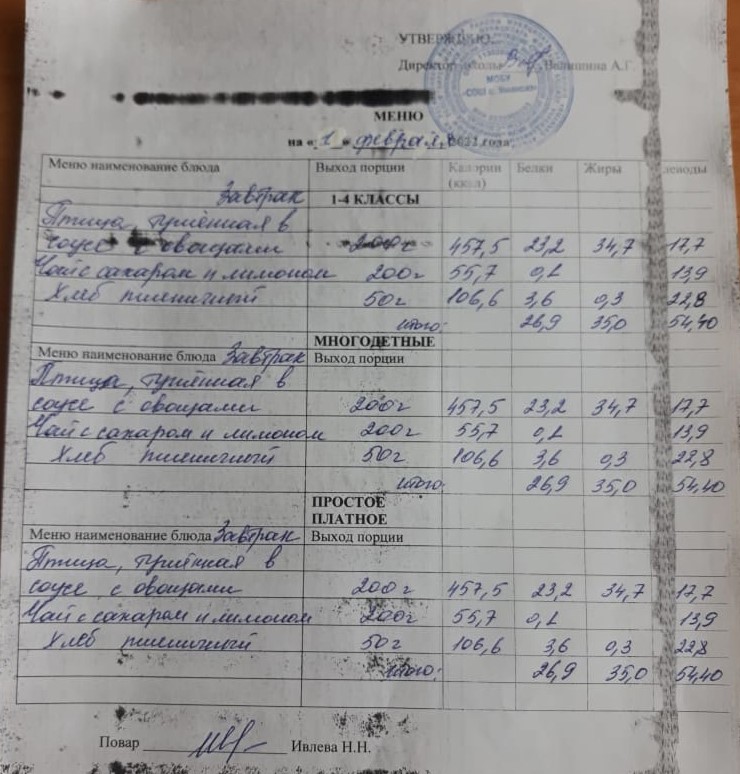 УТВЕРЖДАЮ
Директор школы Валишина А.Г.
МОБУ
МЕНЮ
на « 1 » февраля 2022 года
Меню наименование блюда Выход порции Калории Белки Жиры леводы
(ккал)
Завтрак 1-4 КЛАССЫ
Птица, тушённая в
соусе с овощами 200г 457,5 23,2 34,7 17,7
Чай с сахаром и лимоном 200г 55,7 0,1 13,9
Хлеб пшеничный 50г 106,6 3,6 0,3 22,8
итого: 26,9 35,0 54,40
МНОГОДЕТНЫЕ
Меню наименование блюда Завтрак Выход порции
Птица, тушённая в
соусе с овощами 200г 457,5 23,2 34,7 17,7
Чай с сахаром и лимоном 200г 55,7 0,1 13,9
Хлеб пшеничный 50г 106,6 3,6 0,3 22,8
итого: 26,9 35,0 54,40
ПРОСТОЕ
ПЛАТНОЕ
Меню наименование блюда Завтрак Выход порции
Птица, тушённая в
соусе с овощами 200г 457,5 23,2 34,7 17,7
Чай с сахаром и лимоном 200г 55,7 0,1 13,9
Хлеб пшеничный 50г 106,6 3,6 0,3 22,8
итого: 26,9 35,0 54,40
Повар Ивлева Н.Н.